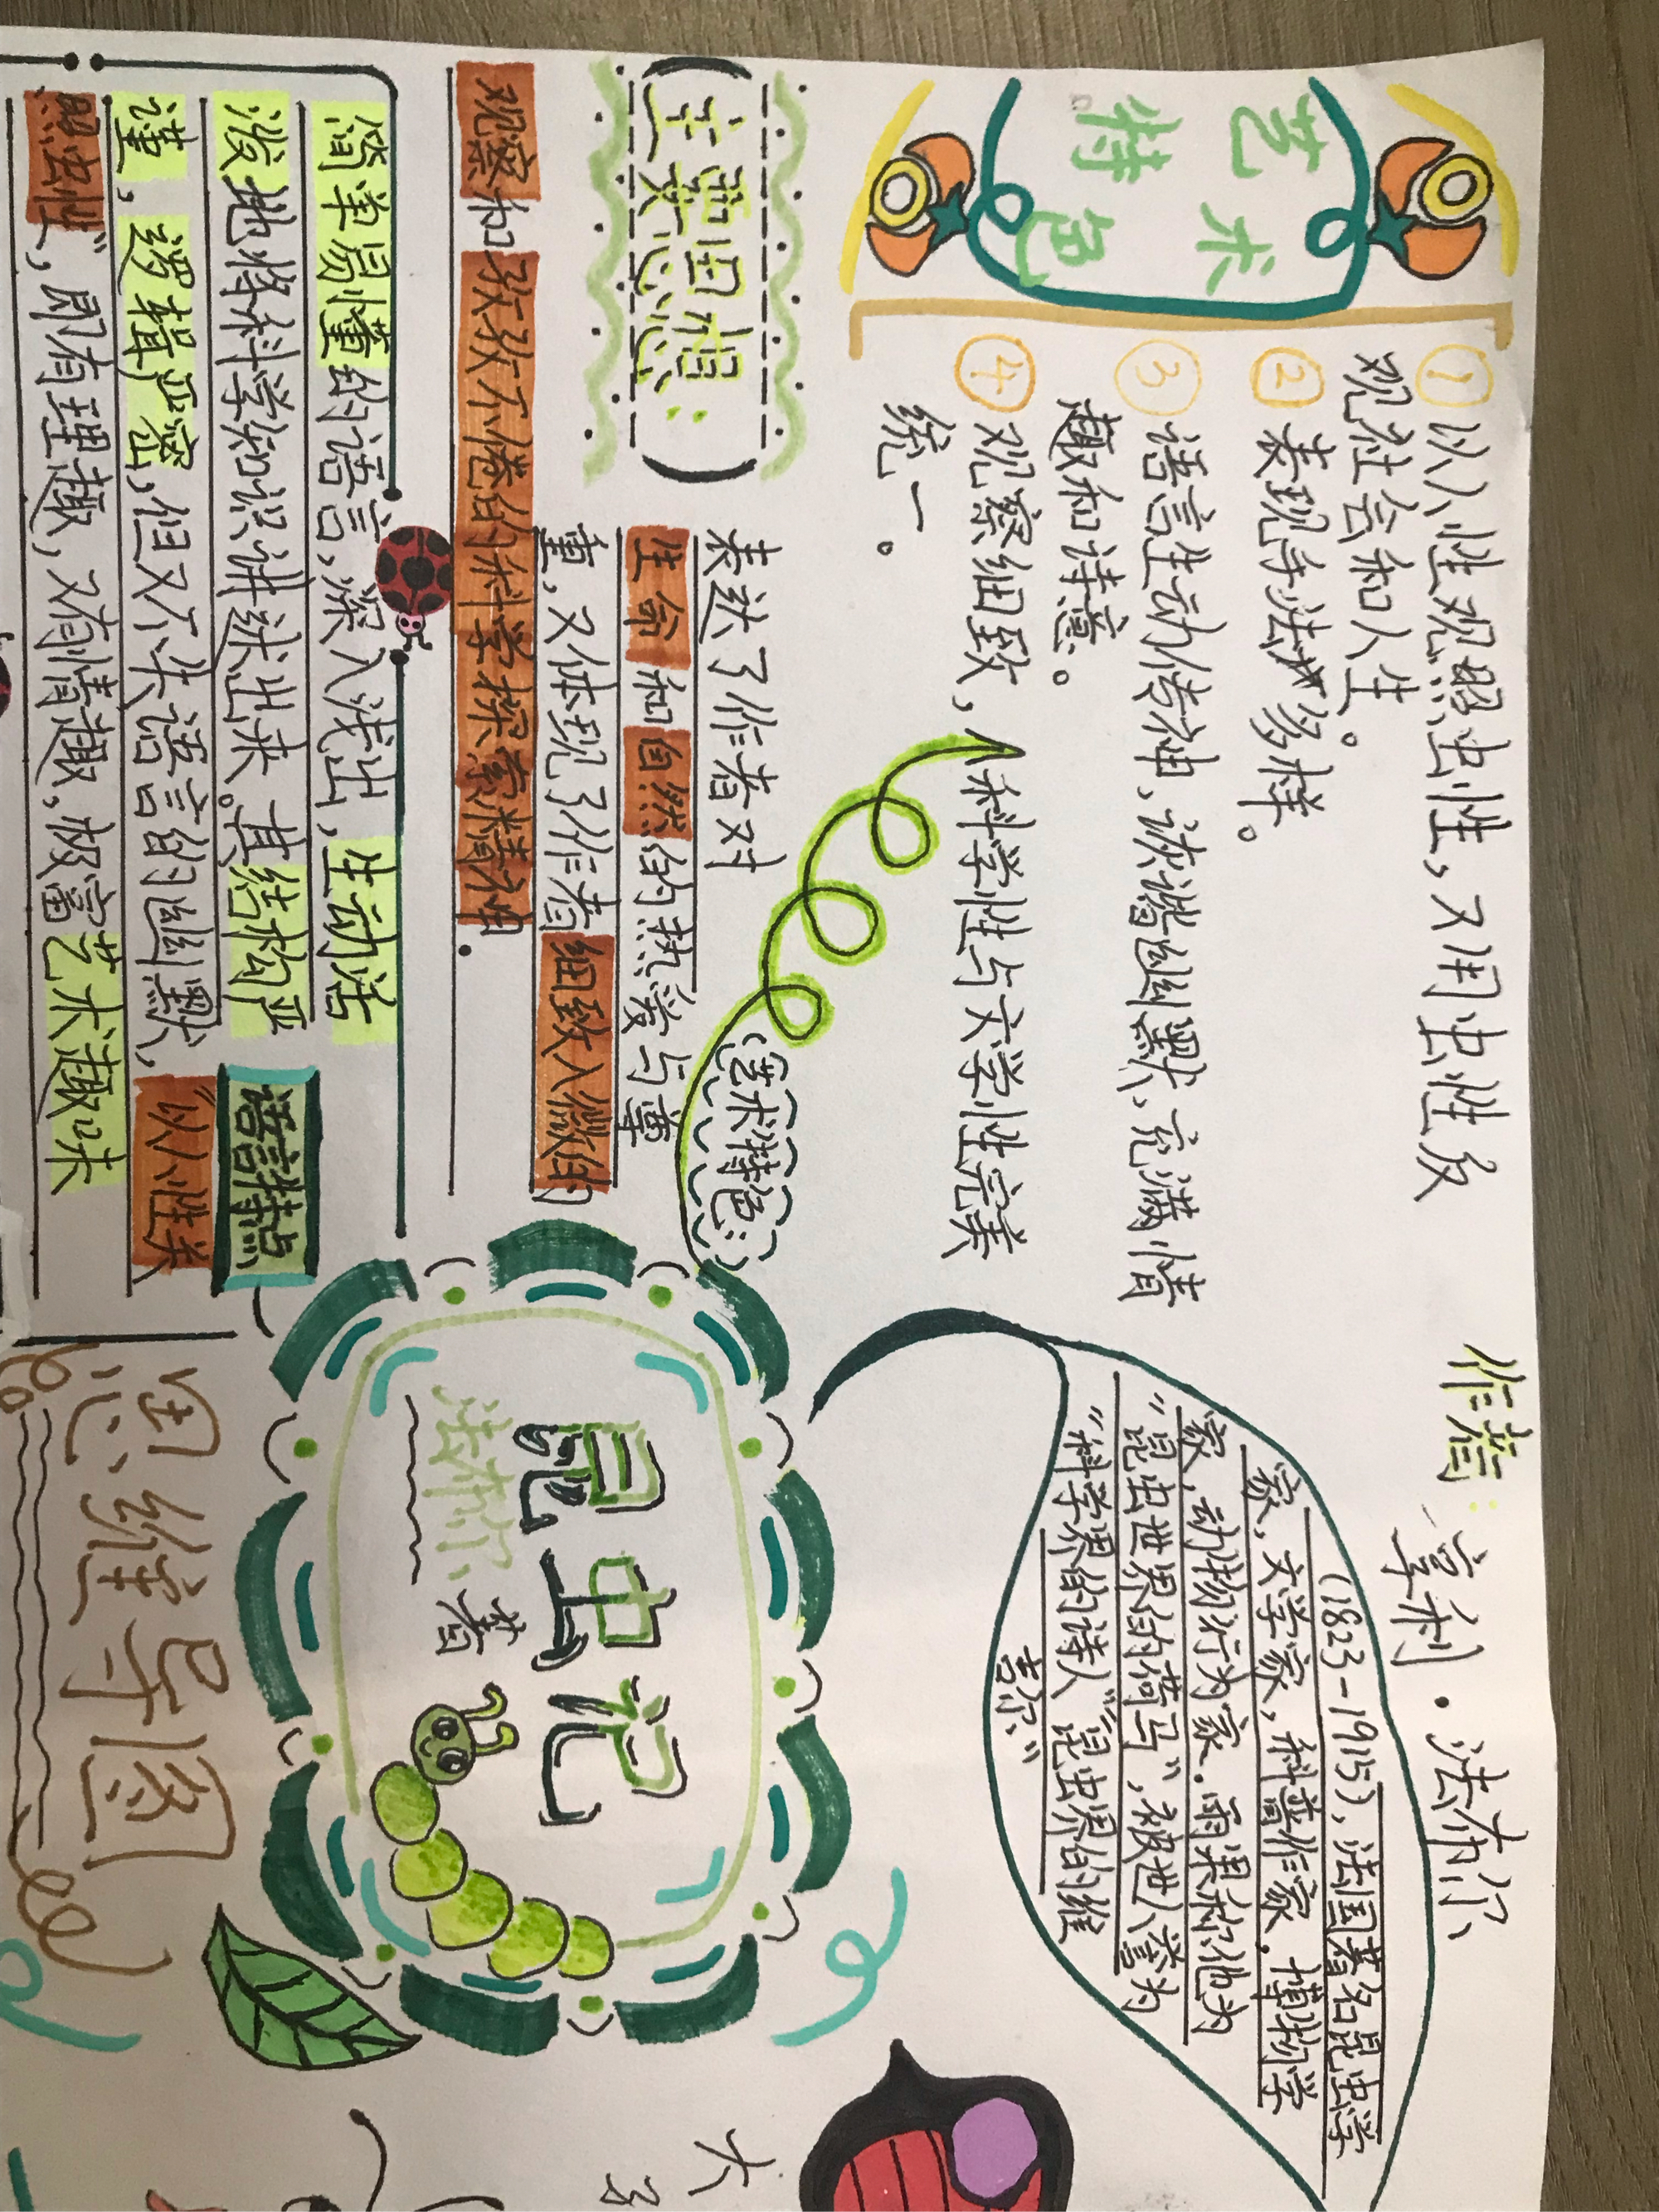 艺术
特色
①以人性观照虫性，又用虫性反
观社会和人生。
②表现手法多样。
③语言生动传神、诙谐幽默、充满情
趣和诗意。
④观察细致，科学性与文学性完美
统一。
作者：亨利·法布尔
(1823-1915)，法国著名昆虫学
家，文学家，科普作家.博物学
家，动物行为家.雨果称他为
“昆虫世界的荷马”，被世人誉为
“科学界的诗人”“昆虫界的维
吉尔”
(主要思想：)
表达了作者对
生命和自然的热爱与尊
重，又体现了作者细致入微的
观察和孜孜不倦的科学探索精神.
艺术特色：
昆虫记
法布尔著
思维导图
语言特点
简单易懂的语言，深入浅出，生动活
泼地将科学知识讲述出来。其结构严
谨，逻辑严密，但又不失语言的幽默，“以人性关
照虫性”，即有理趣，又有情趣，极富艺术趣味
大